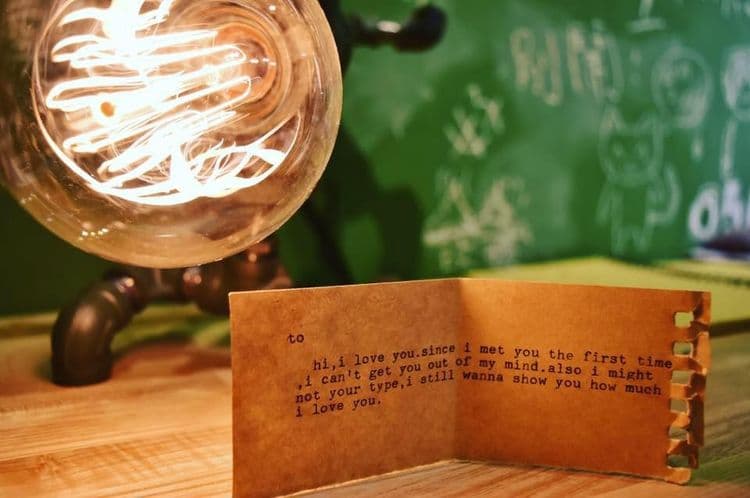 to
hi,i love you.since i met you the first time
,i can't get you out of my mind.also i might
not your type,i still wanna show you how much
i love you.